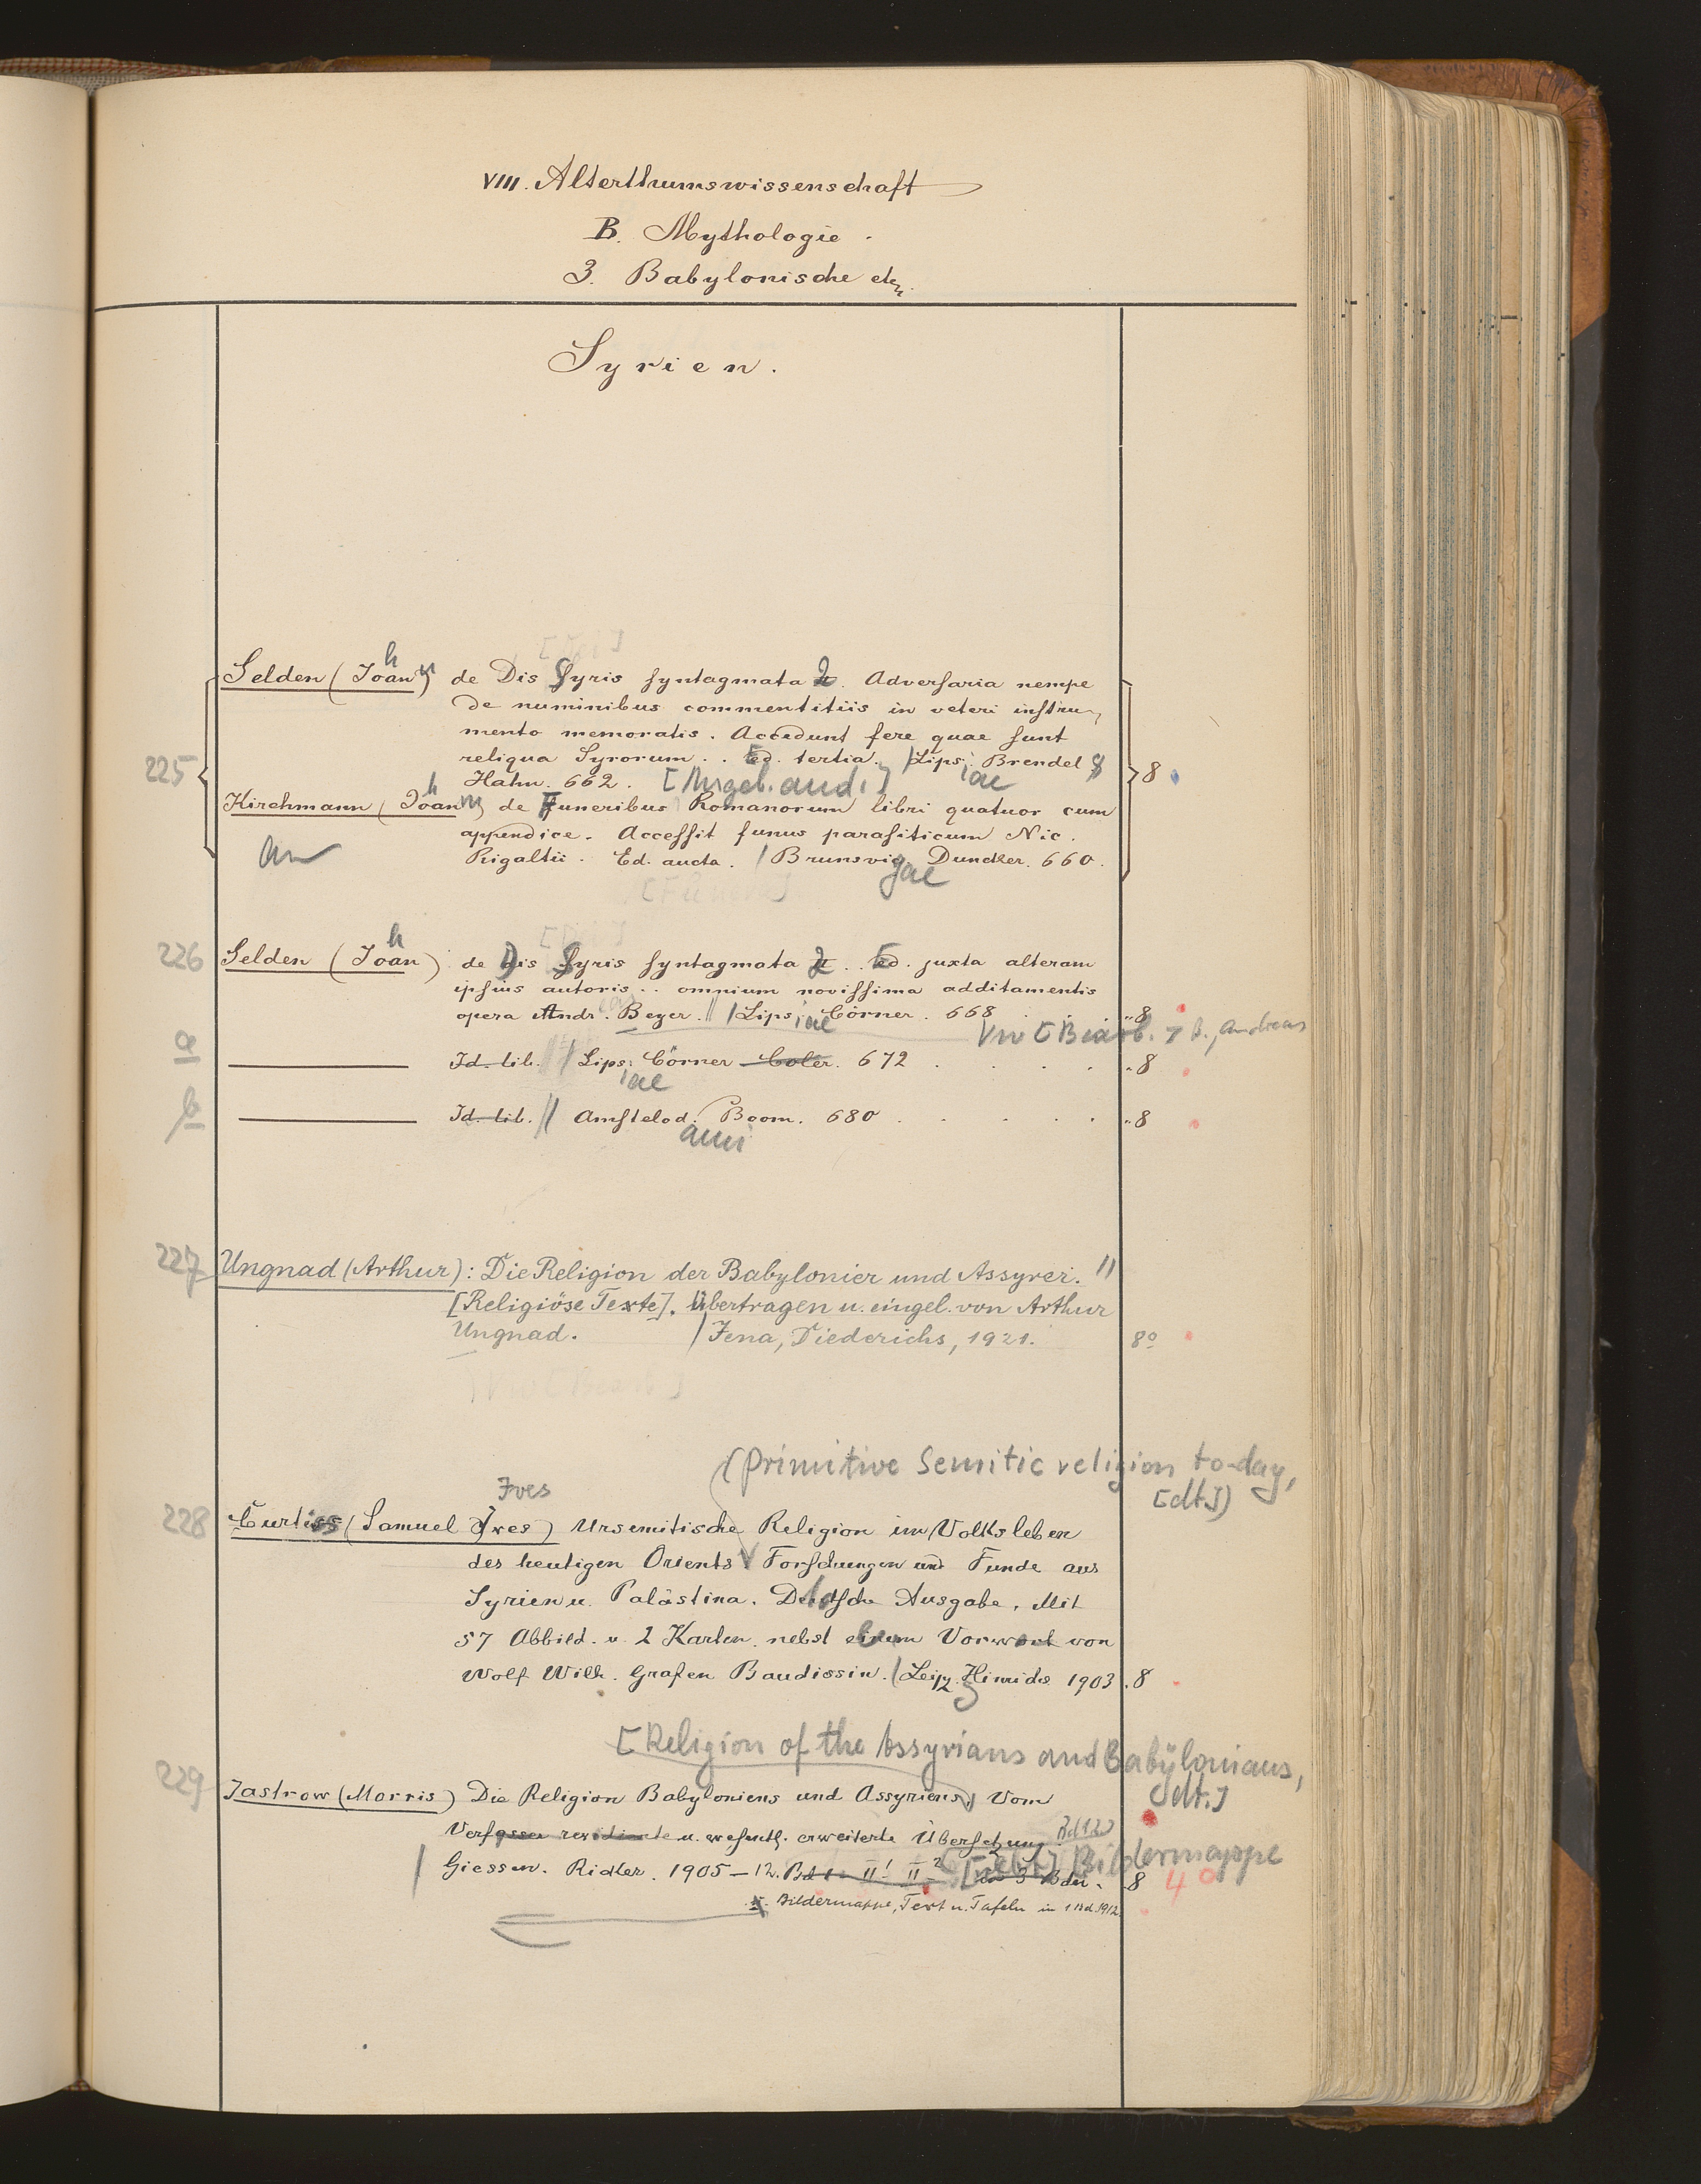 VIII. Alterthumswissenschaft
B. Mythologie.
3. Babylonische etc.
Syrien.
h
Selden (Joan) de Dis Syris syntagmata 2. Adversaria nempe
de numinibus commentitiis in veteri instru-
mento memoratis. Accedunt fere quae sunt
225 reliqua Syrorum.. Ed. tertia. / Lips. Brendel & 8
iae
Hahn. 662. [Angeb. and.]
h
Kirchmann (Joan) de Funeribus Romanorum libri quatuor cum
appendice. Accessit funus parasiticum Nic.
an Rigaltii. Ed. aucta. / Brunsvig Dunckler. 660.
gae
h
226 Selden (Joan) de Dis Syris syntagmata 2.. Ed. juxta alteram
ipsius autoris.. omnium novissima additamentis
opera Andr. Beyer. // / Lips. Cörner. 668 . . . "8
iae
Vw [Bearb.] B., Andreas
a Id. lib. / Lips. Cörner Coler. 672 . . . . "8
iae
b Id. lib. // Amstelod. Boom. 680 . . . . "8
ami
227 Ungnad (Arthur): Die Religion der Babylonier und Assyrer. //
[Religiöse Texte]. Übertragen u. eingel. von Arthur
Ungnad. / Jena, Diederichs, 1921. 8°
(Primitive Semitic religion to-day,
[dt.])
Ives
228 Curtiss (Samuel Ives) Ursemitische Religion im Volksleben
des heutigen Orients Forschungen und Funde aus
Syrien u. Palästina. Deutsche Ausgabe. Mit
57 Abbild. u. 2 Karten nebst einem Vorwort von
Wolf Wilh. Grafen Baudissin. / Leipz. Hinrichs 1903 . 8
[Religion of the Assyrians and Babylonians,
dt.]
229 Jastrow (Morris) Die Religion Babyloniens und Assyriens. Vom
Verfasser revidierte u. wesentl. erweiterte Übersetzung.
Bd 1.2
[Nebst] Bildermappe
/ Giessen. Ricker. 1905–12. Bd 1– II¹ II² Bdn. 8 4°
Bildermappe, Text u. Tafeln in 1 Bd. 1912.